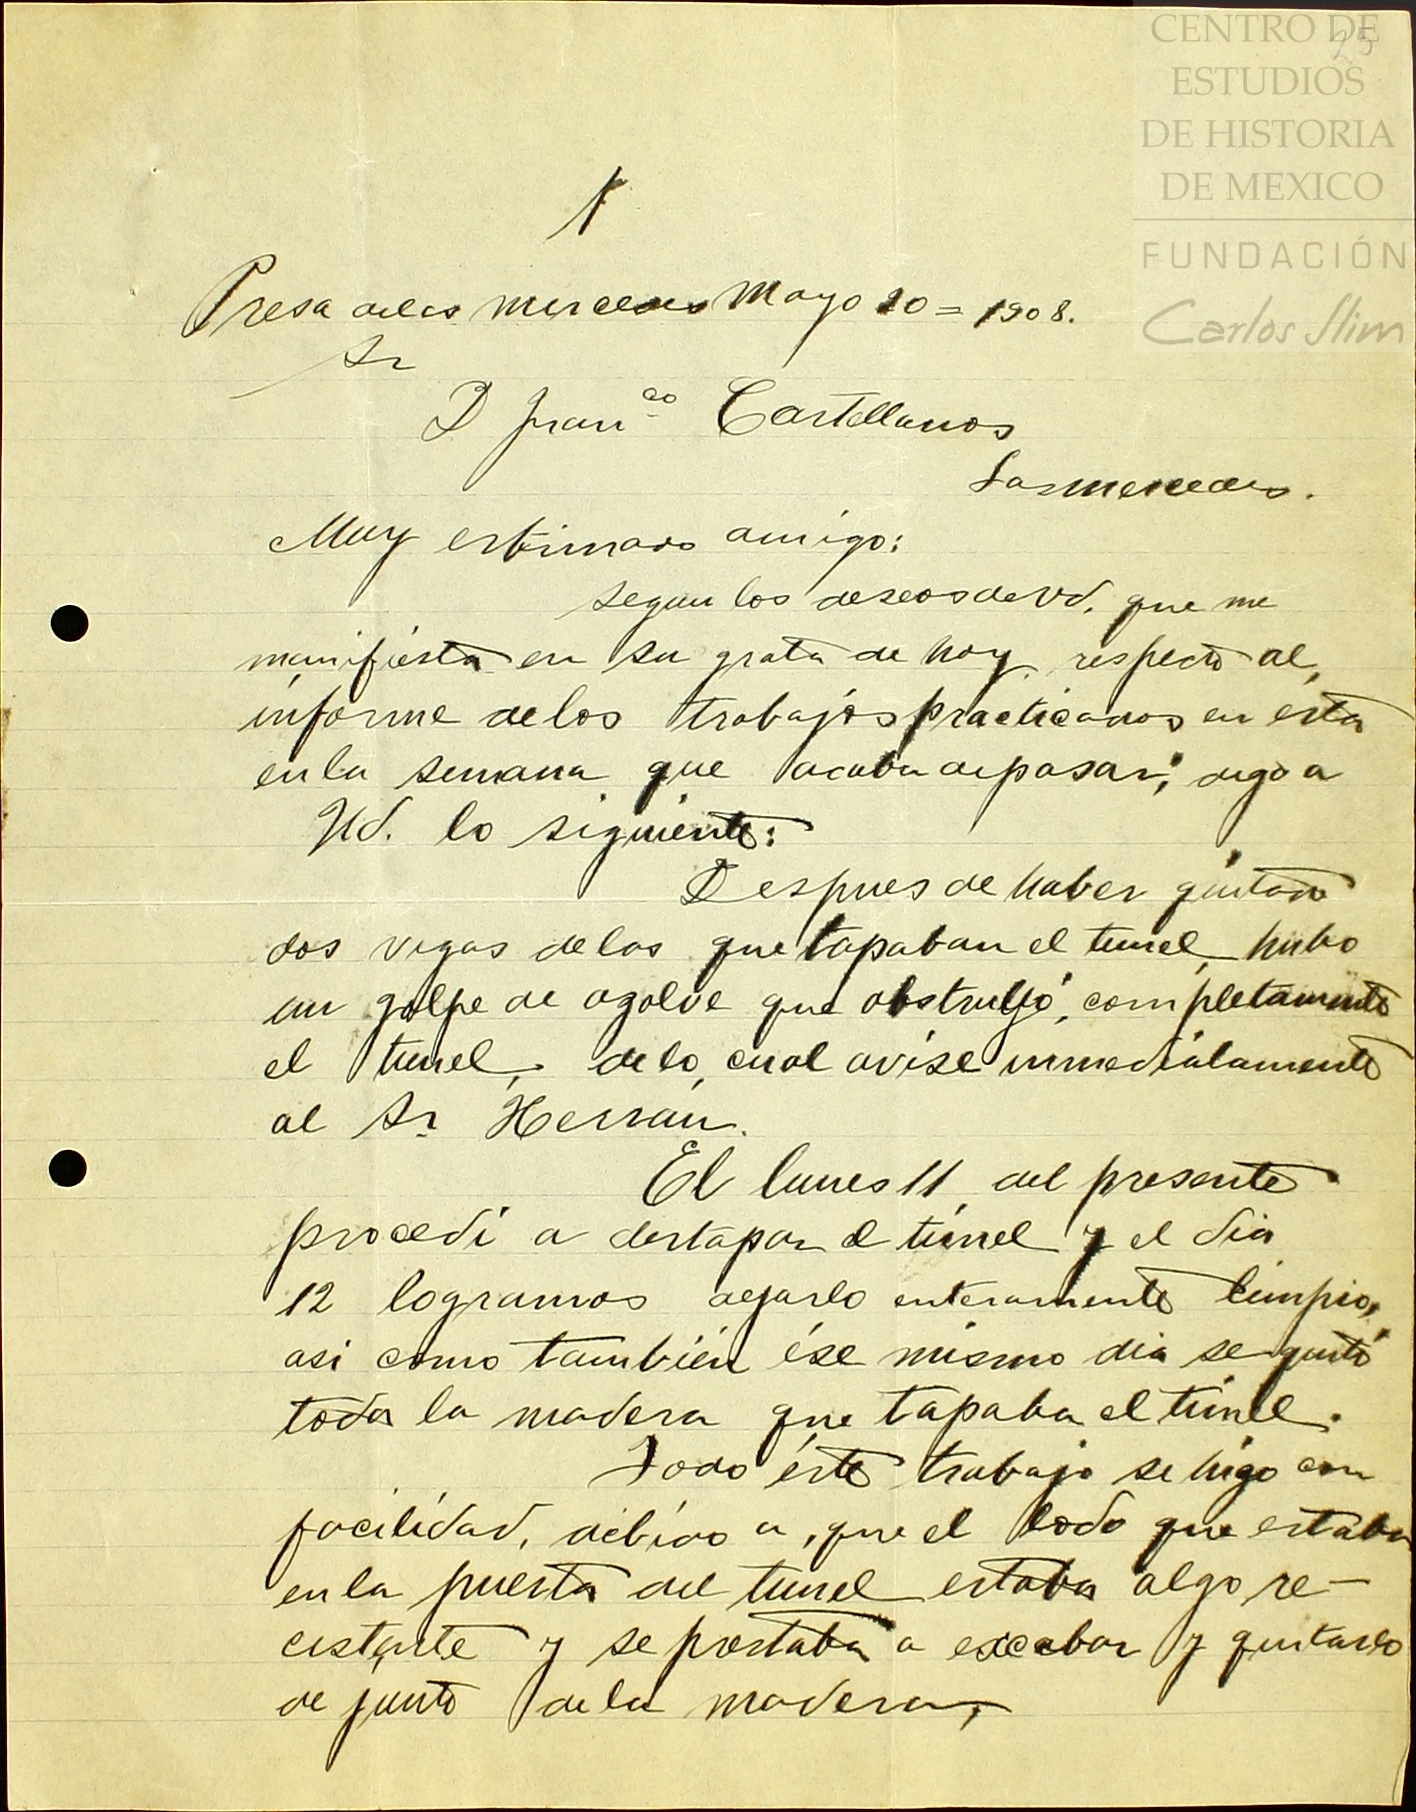 CENTRO DE
ESTUDIOS
DE HISTORIA
DE MEXICO
FUNDACIÓN
Carlos Slim
25
1
Presa de las Mercedes Mayo 20 = 1908.
Sr
D Fran.co Castellanos
Las mercedes.
Muy estimado amigo:
Segun los deseos de Vd. que me
manifiesta en su grata de hoy, respecto al,
informe de los trabajos practicados en ésta
en la semana que acaba de pasar; digo a
Ud. lo siguiente:
Despues de haber quitado
dos vigas de las que tapaban el tunel, hubo
un golpe de azolve que obstrulló, completamente
el tunel, de lo, cual avisé inmediatamente
al Sr Herrán.
El lunes 11 del presente
procedí a destapar el túnel y el dia
12 logramos dejarlo enteramente limpio,
asi como también ése mismo dia se quitó
toda la madera que tapaba el túnel.
Todo éste trabajo se higo con
facilidad, debido a, que el lodo que estaba
en la puerta del tunel estaba algo re-
cistente y se prestaba a excabar y quitarlo
de junto de la madera,